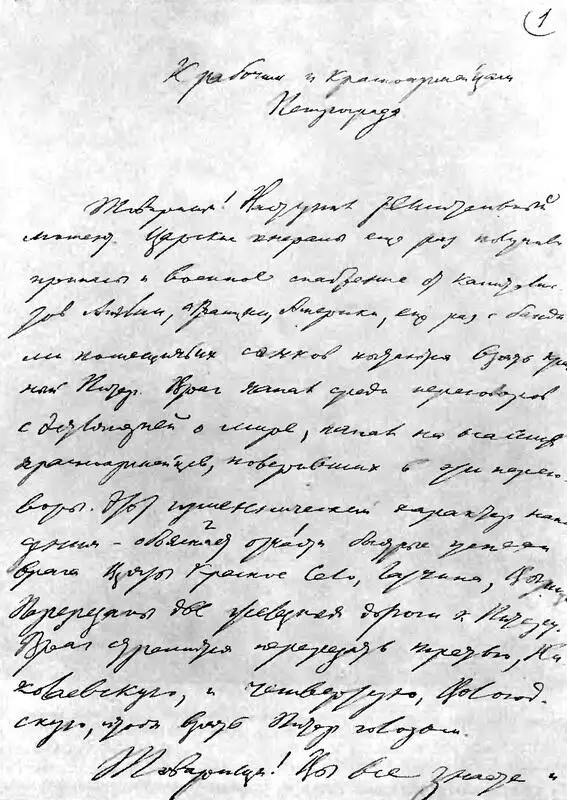 1
К рабочим и красноармейцам
Петрограда
Товарищи! Наступил решительный
момент. Царские генералы еще раз получили
припасы и военное снабжение от капиталис-
тов Англии, Франции, Америки, еще раз с банда
ми помещичьих сынков пытаются взять крас
ный Питер. Враг напал среди переговоров
с Эстляндией о мире, напал на наших
красноармейцев, поверивших в эти перего-
воры. Этот изменнический характер напа
дения – объясняет отчасти быстрые успехи
врага. Взяты Красное Село, Гатчина, Вырица
Перерезаны две железные дороги к Питеру.
Враг стремится перерезать третью, Ни
колаевскую, и четвертую, Вологод-
скую, чтобы взять Питер голодом.
Товарищи! Вы все знаете и